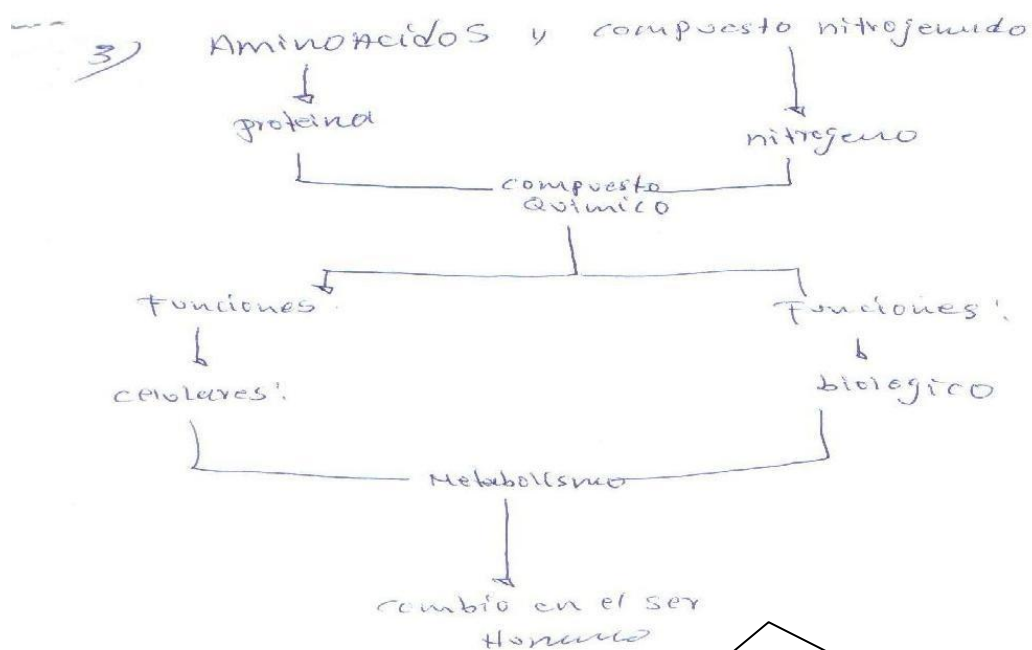 3) AminoAcidos y compuesto nitrojenudo
proteina nitrogeno
compuesto
Quimico
Funciones: Funciones:
celulares: biologico
Metabolismo
cambio en el ser
Humano